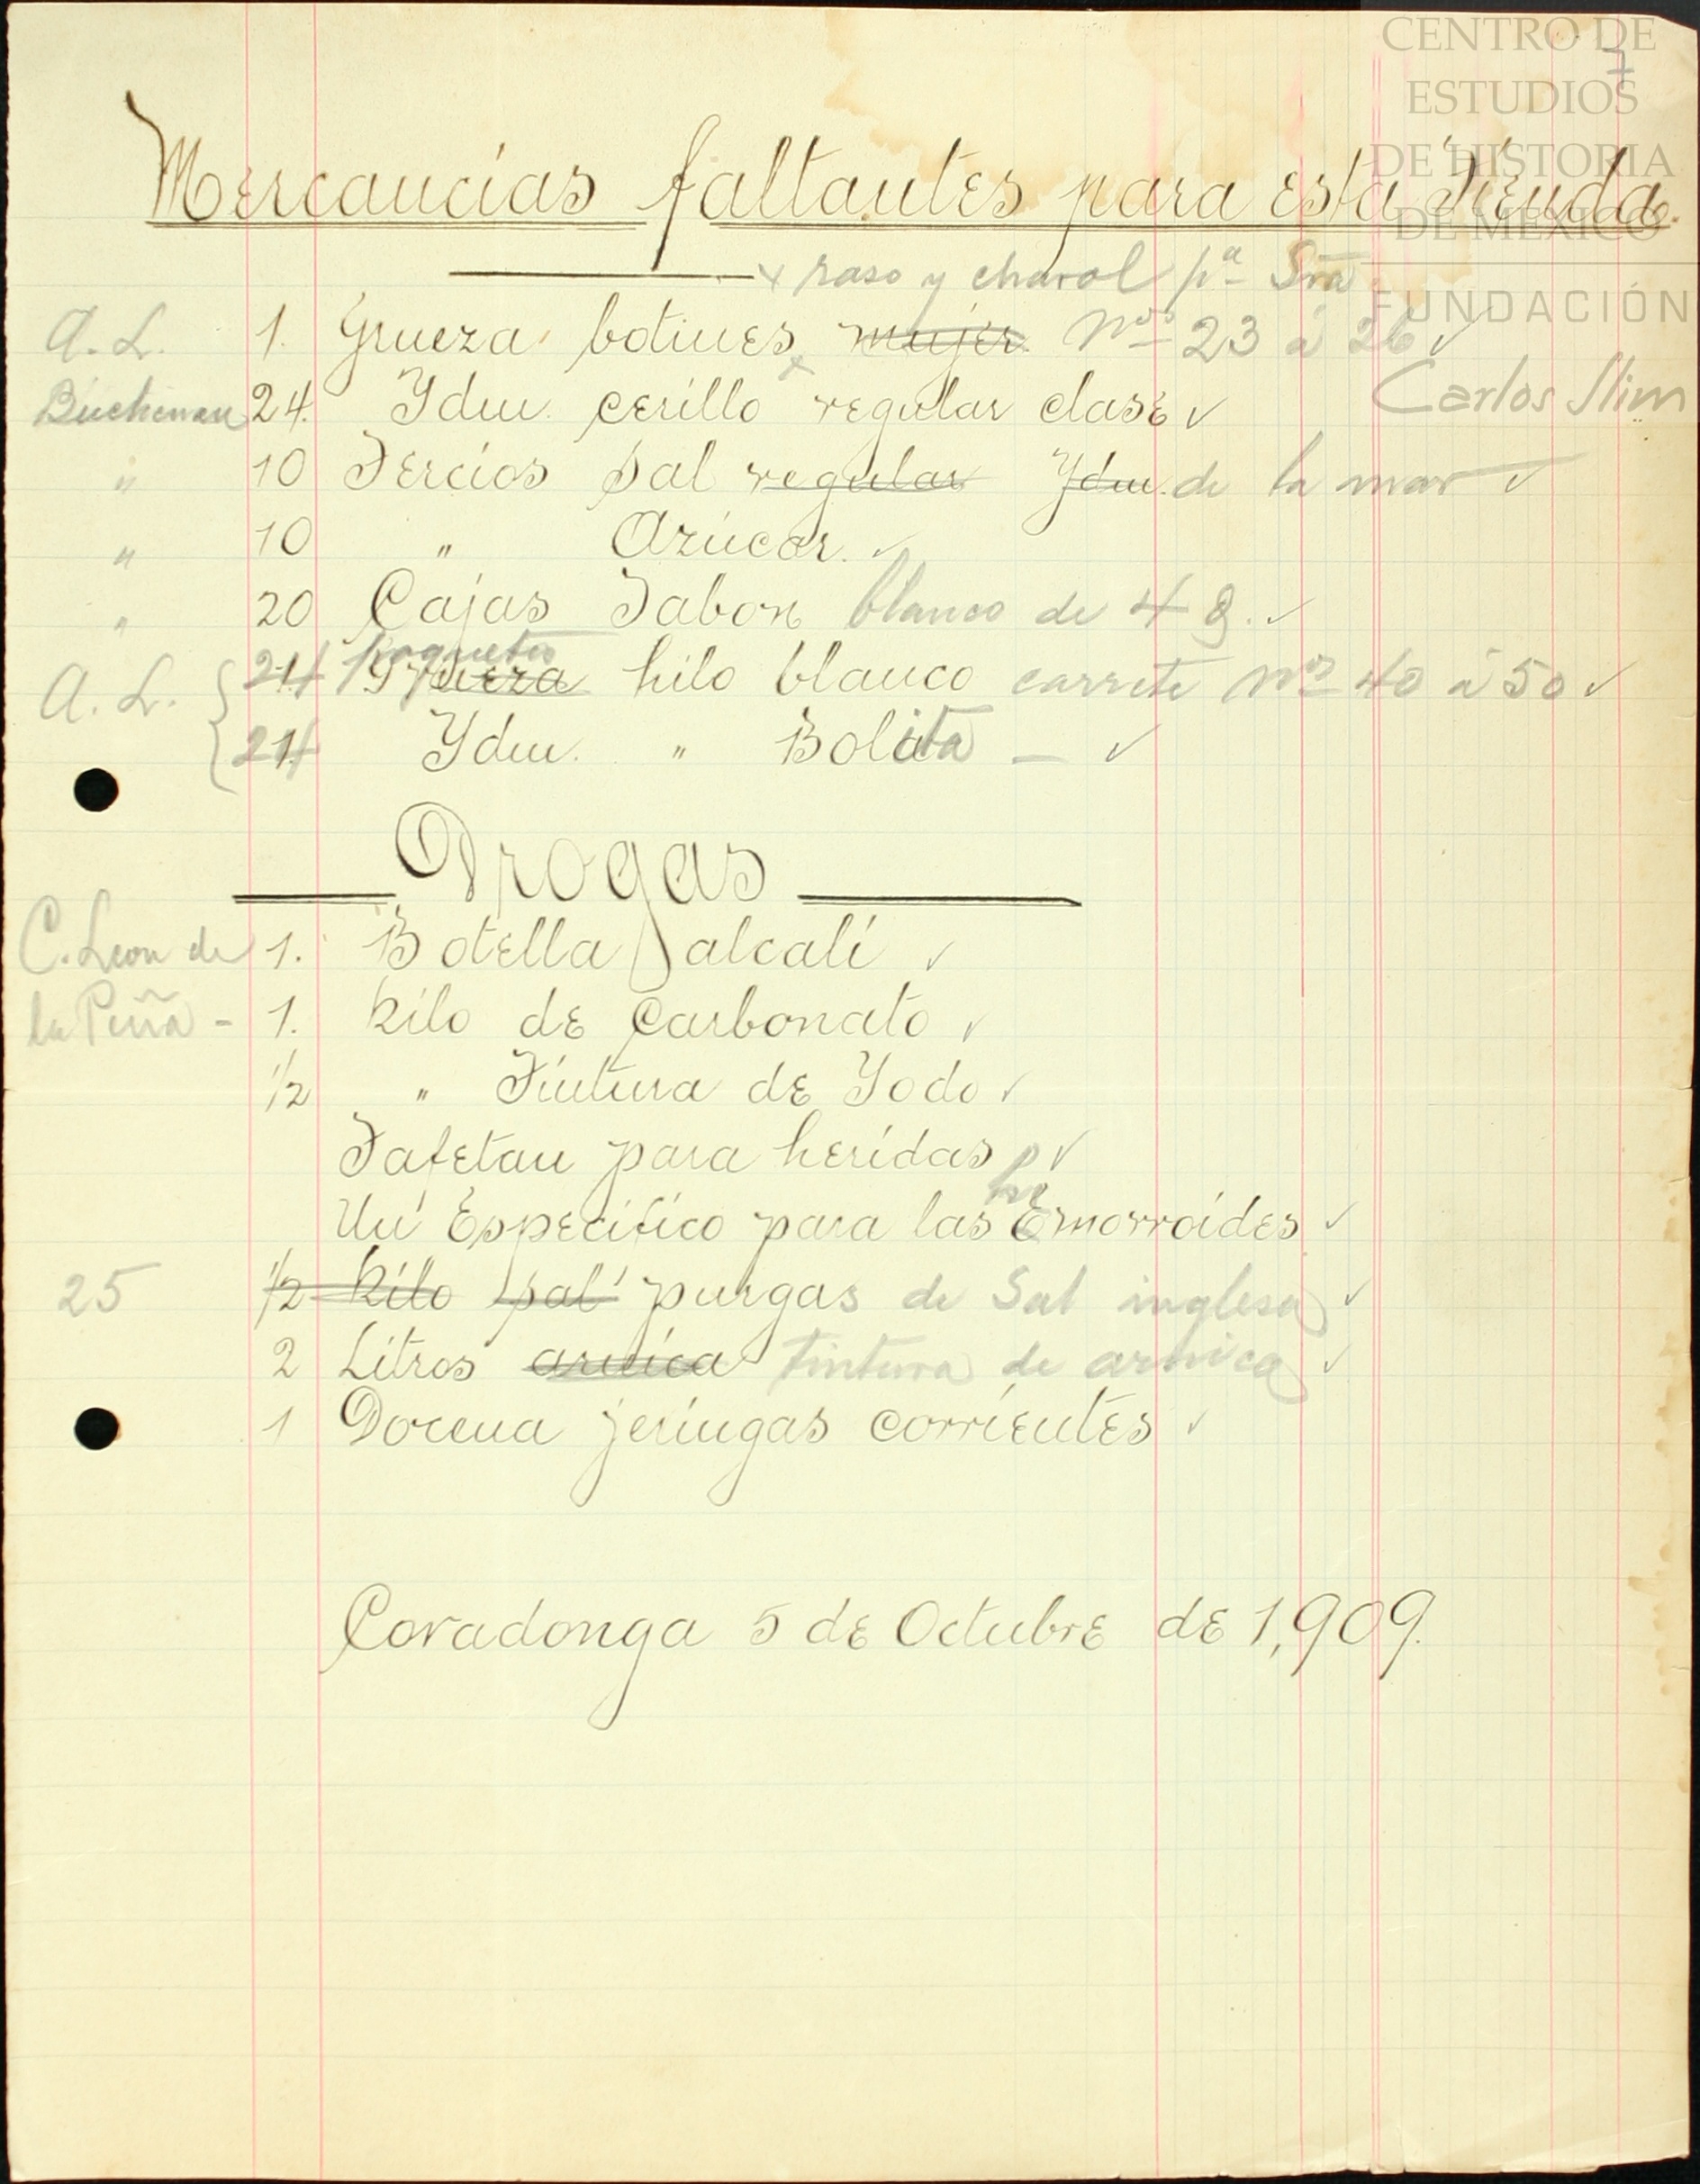 CENTRO DE
ESTUDIOS
DE HISTORIA
DE MÉXICO
FUNDACIÓN
Carlos Slim
7
Mercancias faltantes para esta Tienda.
x raso y charol pª Sra
A. L. 1. Grueza botines x mujer Nos 23 á 26 ✓
24. Ydm. cerillo regular clase ✓
" 10 Tercios sal regular Ydm. de la mar ✓
" 10 " Azúcar. ✓
" 20 Cajas Jabon blanco de 48. ✓
paquetes
A. L. { 24 Grueza hilo blanco carrete Nos 40 á 50 ✓
24 Ydm. " Bolita — ✓
Drogas
C. Leon de 1. Botella alcali ✓
la Peña - 1. Kilo de Carbonato ✓
1/2 " Tintura de Yodo ✓
Tafetan para heridas ✓
he
Un Especifico para las Emorroides ✓
25 1/2 Kilo sal purgas de Sal inglesa ✓
2 Litros arnica tintura de arnica ✓
1 Docena jeringas corrientes ✓
Covadonga 5 de Octubre de 1,909.